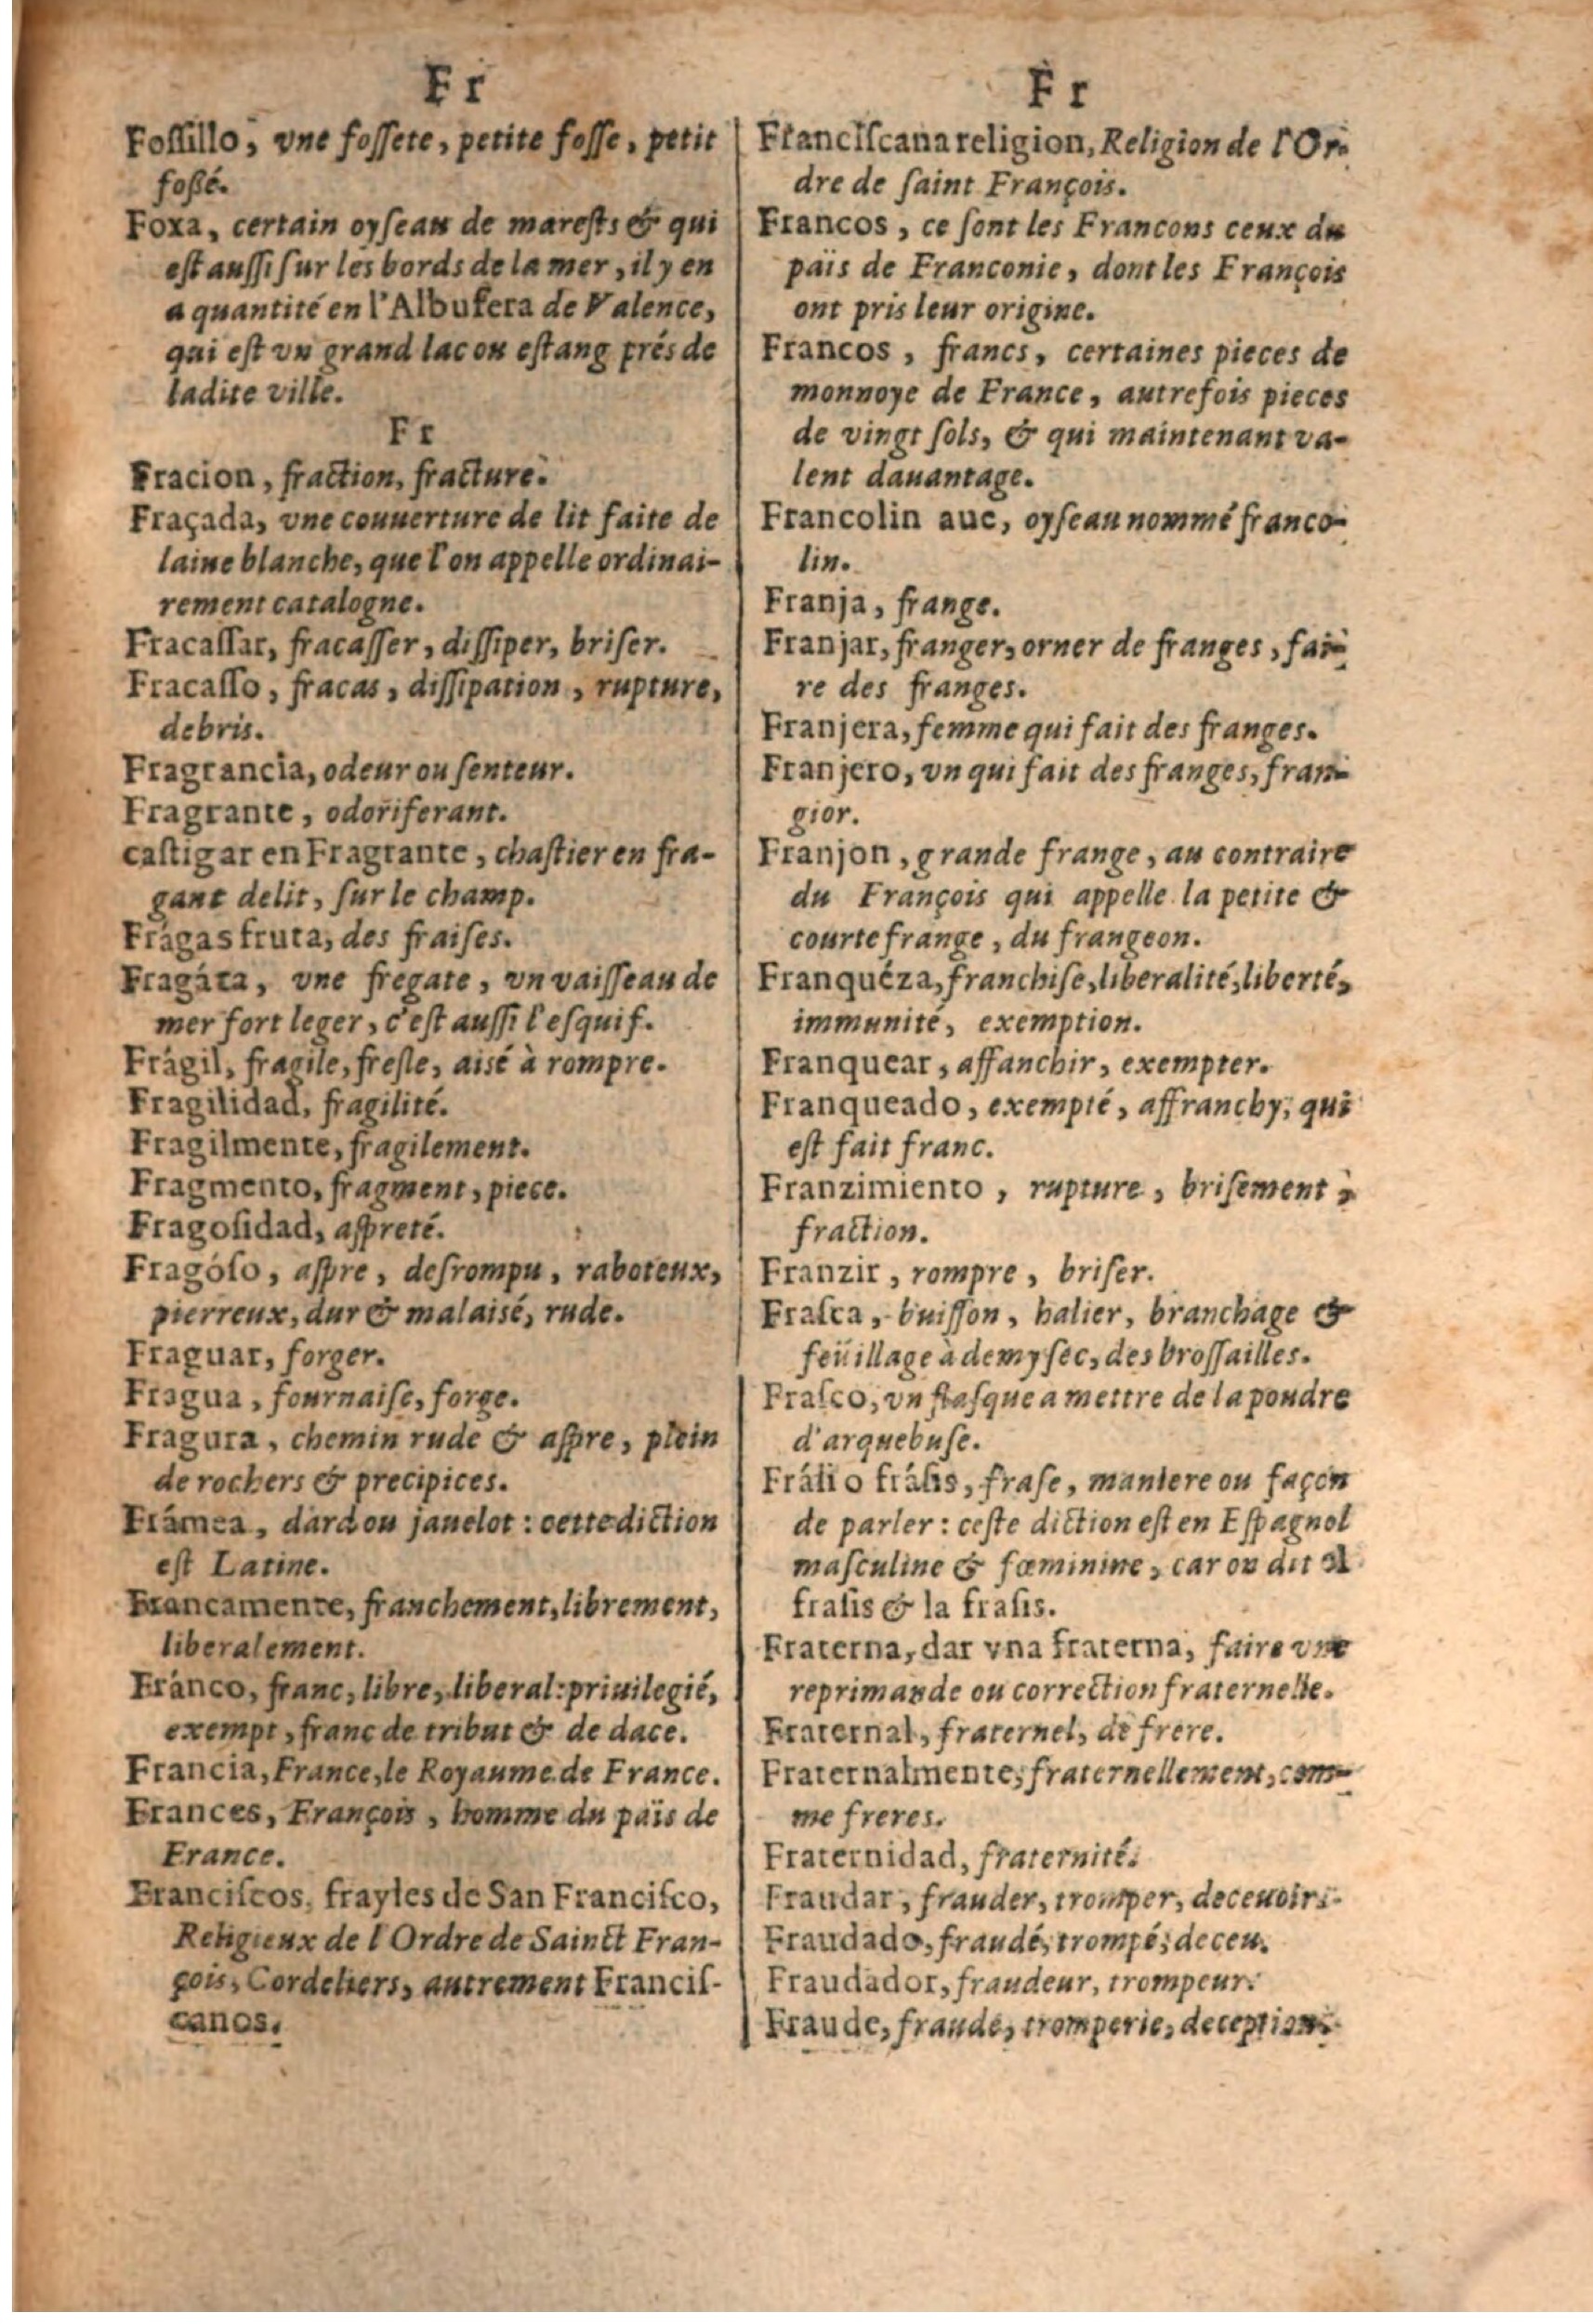 Fr
Fossillo, vne fossete, petite fosse, petit
fossé.
Foxa, certain oyseau de marests & qui
est aussi sur les bords de la mer, il y en
a quantité en l'Albufera de Valence,
qui est vn grand lac ou estang prés de
ladite ville.
Fr
Fracion, fraction, fracture.
Fraçada, vne couuerture de lit faite de
laine blanche, que l'on appelle ordinai-
rement catalogne.
Fracassar, fracasser, dissiper, briser.
Fracasso, fracas, dissipation, rupture,
debris.
Fragrancia, odeur ou senteur.
Fragrante, odoriferant.
castigar en Fragrante, chastier en fra-
gant delit, sur le champ.
Frágas fruta, des fraises.
Fragáta, vne fregate, vn vaisseau de
mer fort leger, c'est aussi l'esquif.
Frágil, fragile, fresle, aisé à rompre.
Fragilidad, fragilité.
Fragilmente, fragilement.
Fragmento, fragment, piece.
Fragosidad, aspreté.
Fragóso, aspre, desrompu, raboteux,
pierreux, dur & malaisé, rude.
Fraguar, forger.
Fragua, fournaise, forge.
Fragura, chemin rude & aspre, plein
de rochers & precipices.
Frámea, dard ou jauelot : cette diction
est Latine.
Francamente, franchement, librement,
liberalement.
Fránco, franc, libre, liberal: priuilegié,
exempt, franc de tribut & de dace.
Francia, France, le Royaume de France.
Frances, François, homme du païs de
France.
Franciscos, frayles de San Francisco,
Religieux de l'Ordre de Sainct Fran-
çois, Cordeliers, autrement Francis-
canos.
Fr
Franciscana religion, Religion de l'Or-
dre de saint François.
Francos, ce sont les Francons ceux du
païs de Franconie, dont les François
ont pris leur origine.
Francos, francs, certaines pieces de
monnoye de France, autrefois pieces
de vingt sols, & qui maintenant va-
lent dauantage.
Francolin aue, oyseau nommé franco-
lin.
Franja, frange.
Franjar, franger, orner de franges, fai-
re des franges.
Franjera, femme qui fait des franges.
Franjero, vn qui fait des franges, fran-
gior.
Franjon, grande frange, au contraire
du François qui appelle la petite &
courte frange, du frangeon.
Franquéza, franchise, liberalité, liberté,
immunité, exemption.
Franquear, affanchir, exempter.
Franqueado, exempté, affranchy, qui
est fait franc.
Franzimiento, rupture, brisement,
fraction.
Franzir, rompre, briser.
Frasca, buisson, halier, branchage &
feüillage à demy sec, des brossailles.
Frasco, vn flasque a mettre de la poudre
d'arquebuse.
Frási o frásis, frase, maniere ou façon
de parler : ceste diction est en Espagnol
masculine & fœminine, car on dit el
frasis & la frasis.
Fraterna, dar vna fraterna, faire vne
reprimande ou correction fraternelle.
Fraternal, fraternel, de frere.
Fraternalmente, fraternellement, com-
me freres.
Fraternidad, fraternité.
Fraudar, frauder, tromper, deceuoir.
Fraudado, fraudé, trompé, deceu.
Fraudador, fraudeur, trompeur.
Fraude, fraude, tromperie, deception.